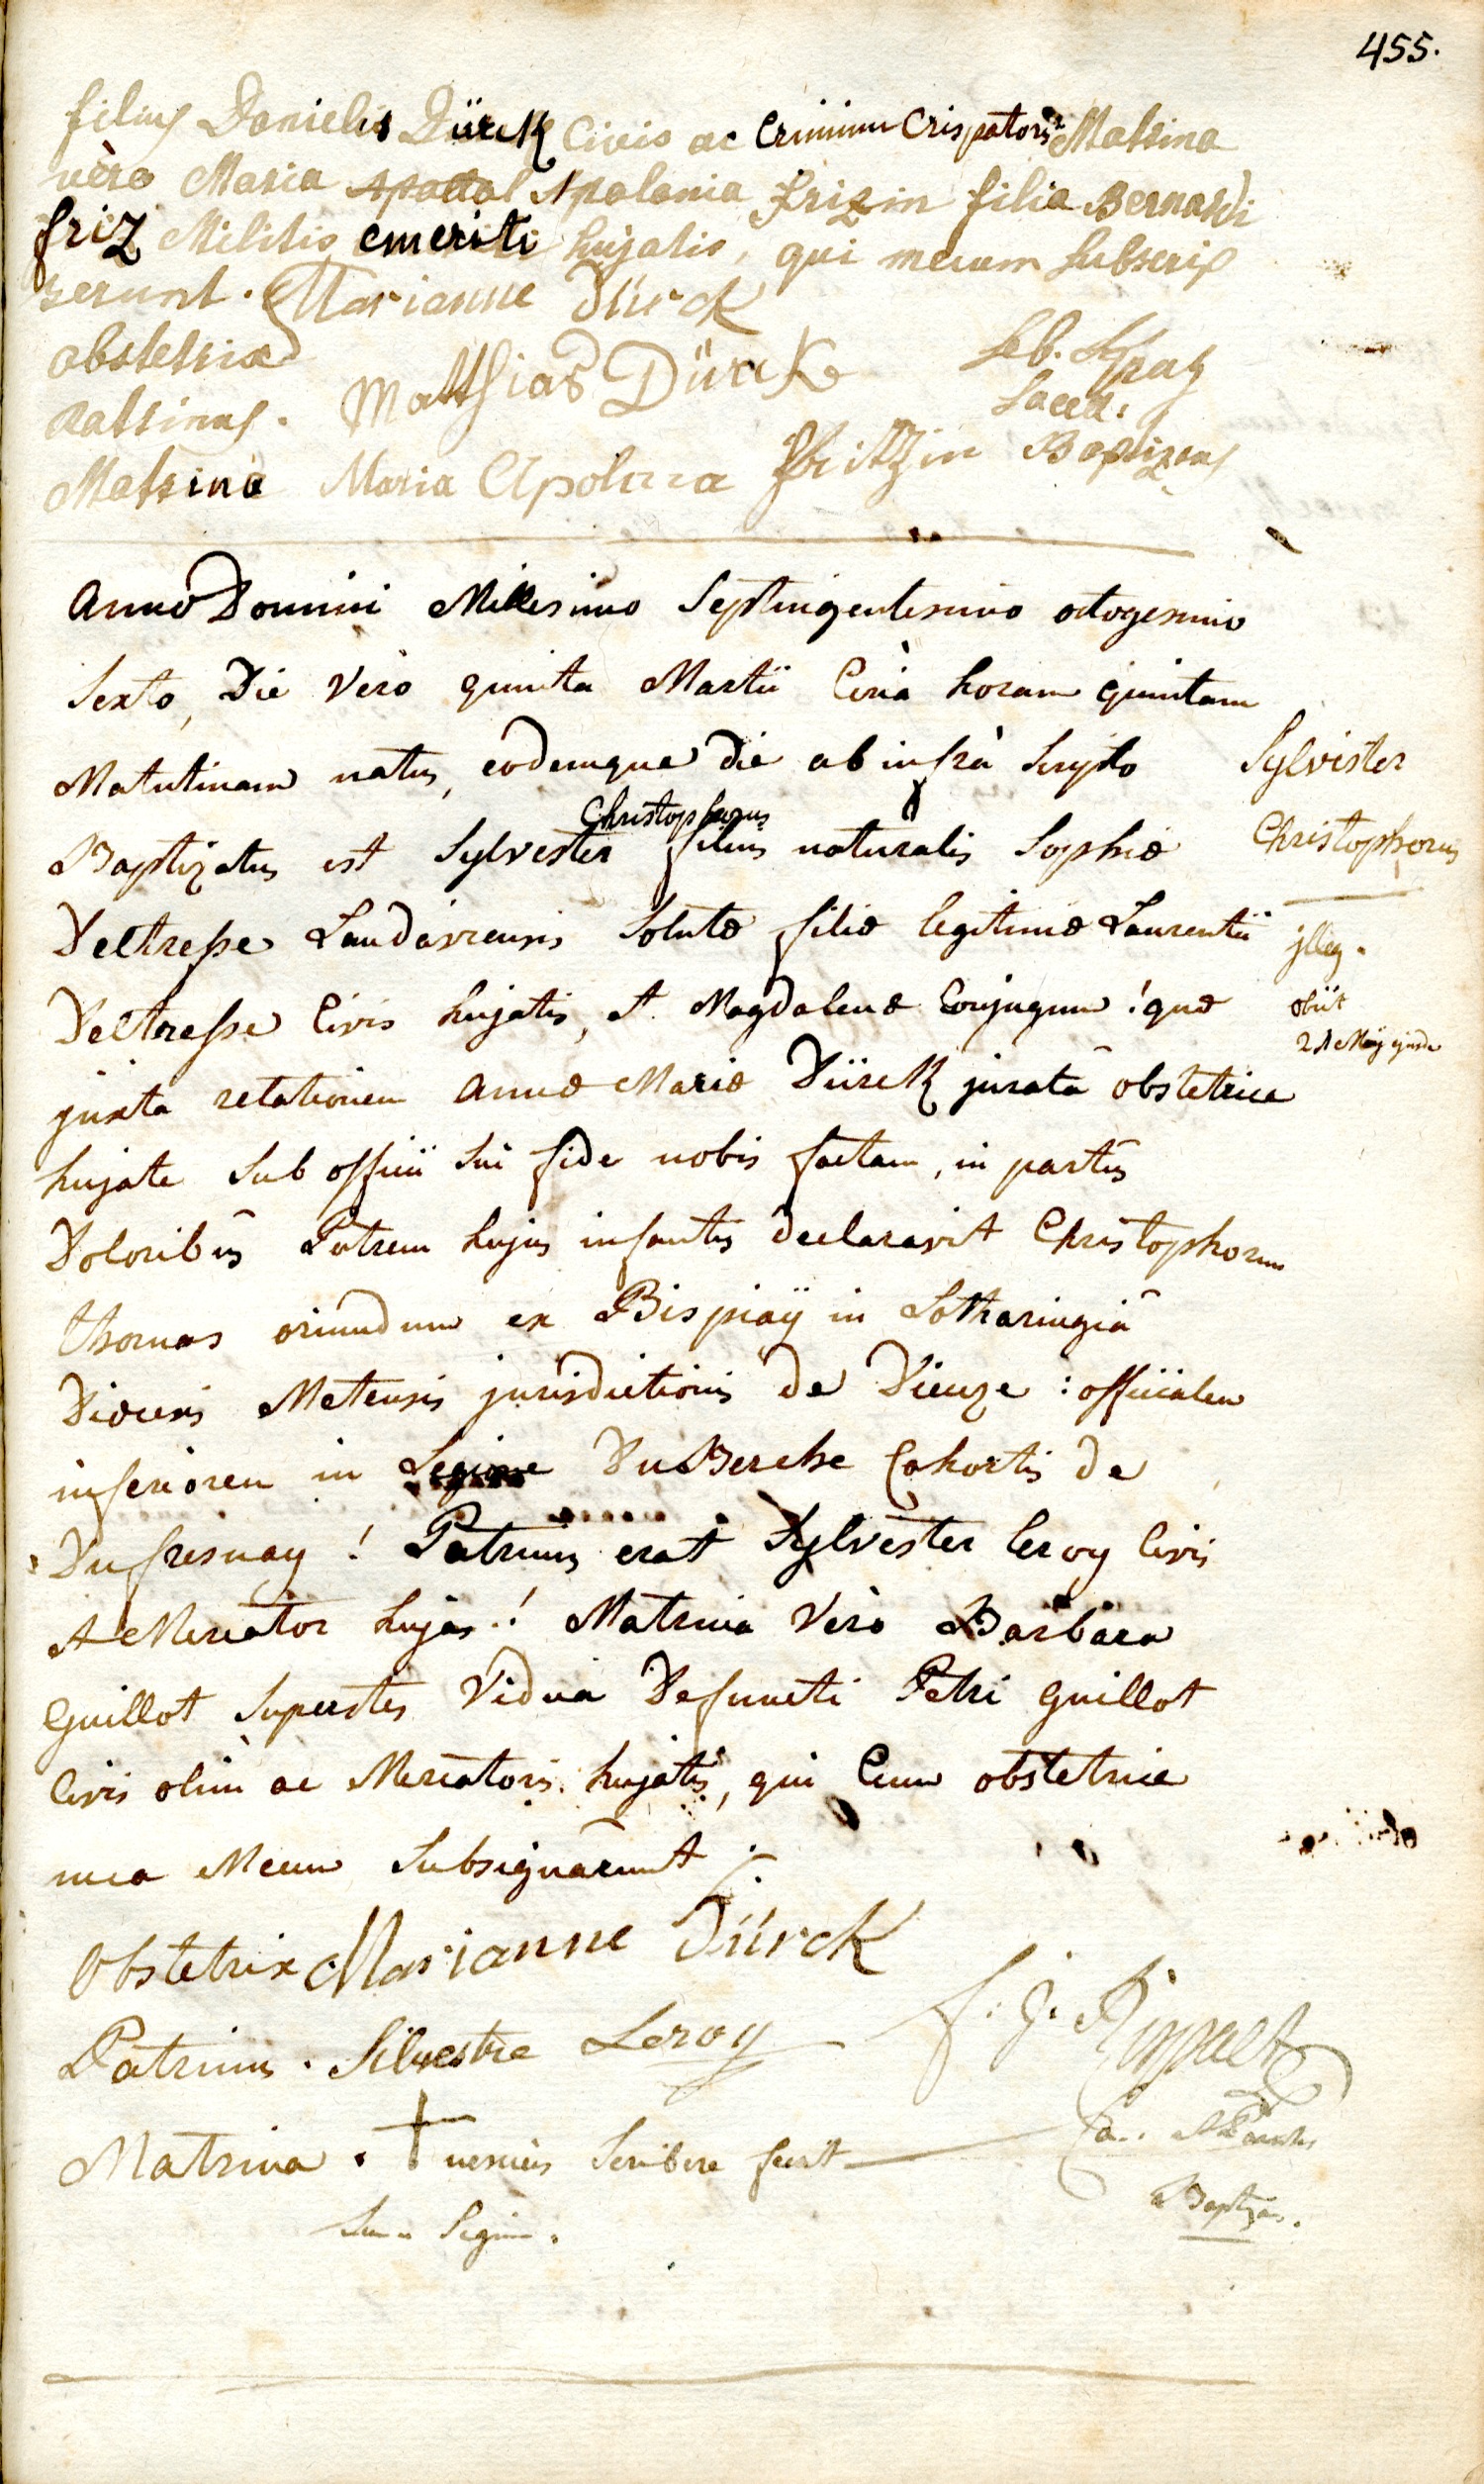 455.
filius Danielis Dürck Civis ac Crinium Crispatoris Matrina
vèro Maria Apolonia Frizin filia Bernardi
friz Militis emeriti hujatis, qui mecum subscrip
serunt. Marianne Dürck
obstetrix
Matthias Dürck
Patrinus.
Seb. Kraz
Sacell:
Baptizans
Matrina Maria Apolonia Fritzin
Anno Domini Millesimo Septingentesimo octogesimo
Sexto, Die Verò quinta Martii Circà horam quintam
Matutinam natus, eodemque die ab infrà Scripto
Sylvister
Christophorus
Baptizatus est Sylvester filius naturalis Sophiæ
Christophorus
Deltresse Landaviensis Solutæ filiæ legitimæ Laurentii
jlleg.
Deltresse Civis hujatis, et Magdalenæ Conjugum! quæ
obiit
21 Maij ejusd
juxta relationem Annæ Mariæ Dürck juratâ obstetrice
hujate Sub officii Sui fide nobis factam, in partûs
Doloribus Patrem hujus infantis declaravit Christophorum
Thomas oriundum ex Bispiaÿ in Lotharingiâ
Diœcesis Metensis jurisdictionis de Dieuze: officialem
inferiorem in Legione DuBerche Cohortis de
Dufresnay! Patrinus erat Sylvester leroy Civis
et Mercator hujas! Matrina Verò Barbara
Guillot Superstes Vidua Defuncti Petri Guillot
Civis olim ac Mercatoris hujatis, qui Cum obstetrice
mea Mecum Subsignarunt
Obstetrix Marianne Dürck
Patrinus. Silvestre Leroy
Matrina. † nescius Scribere fecit
Baptizans.